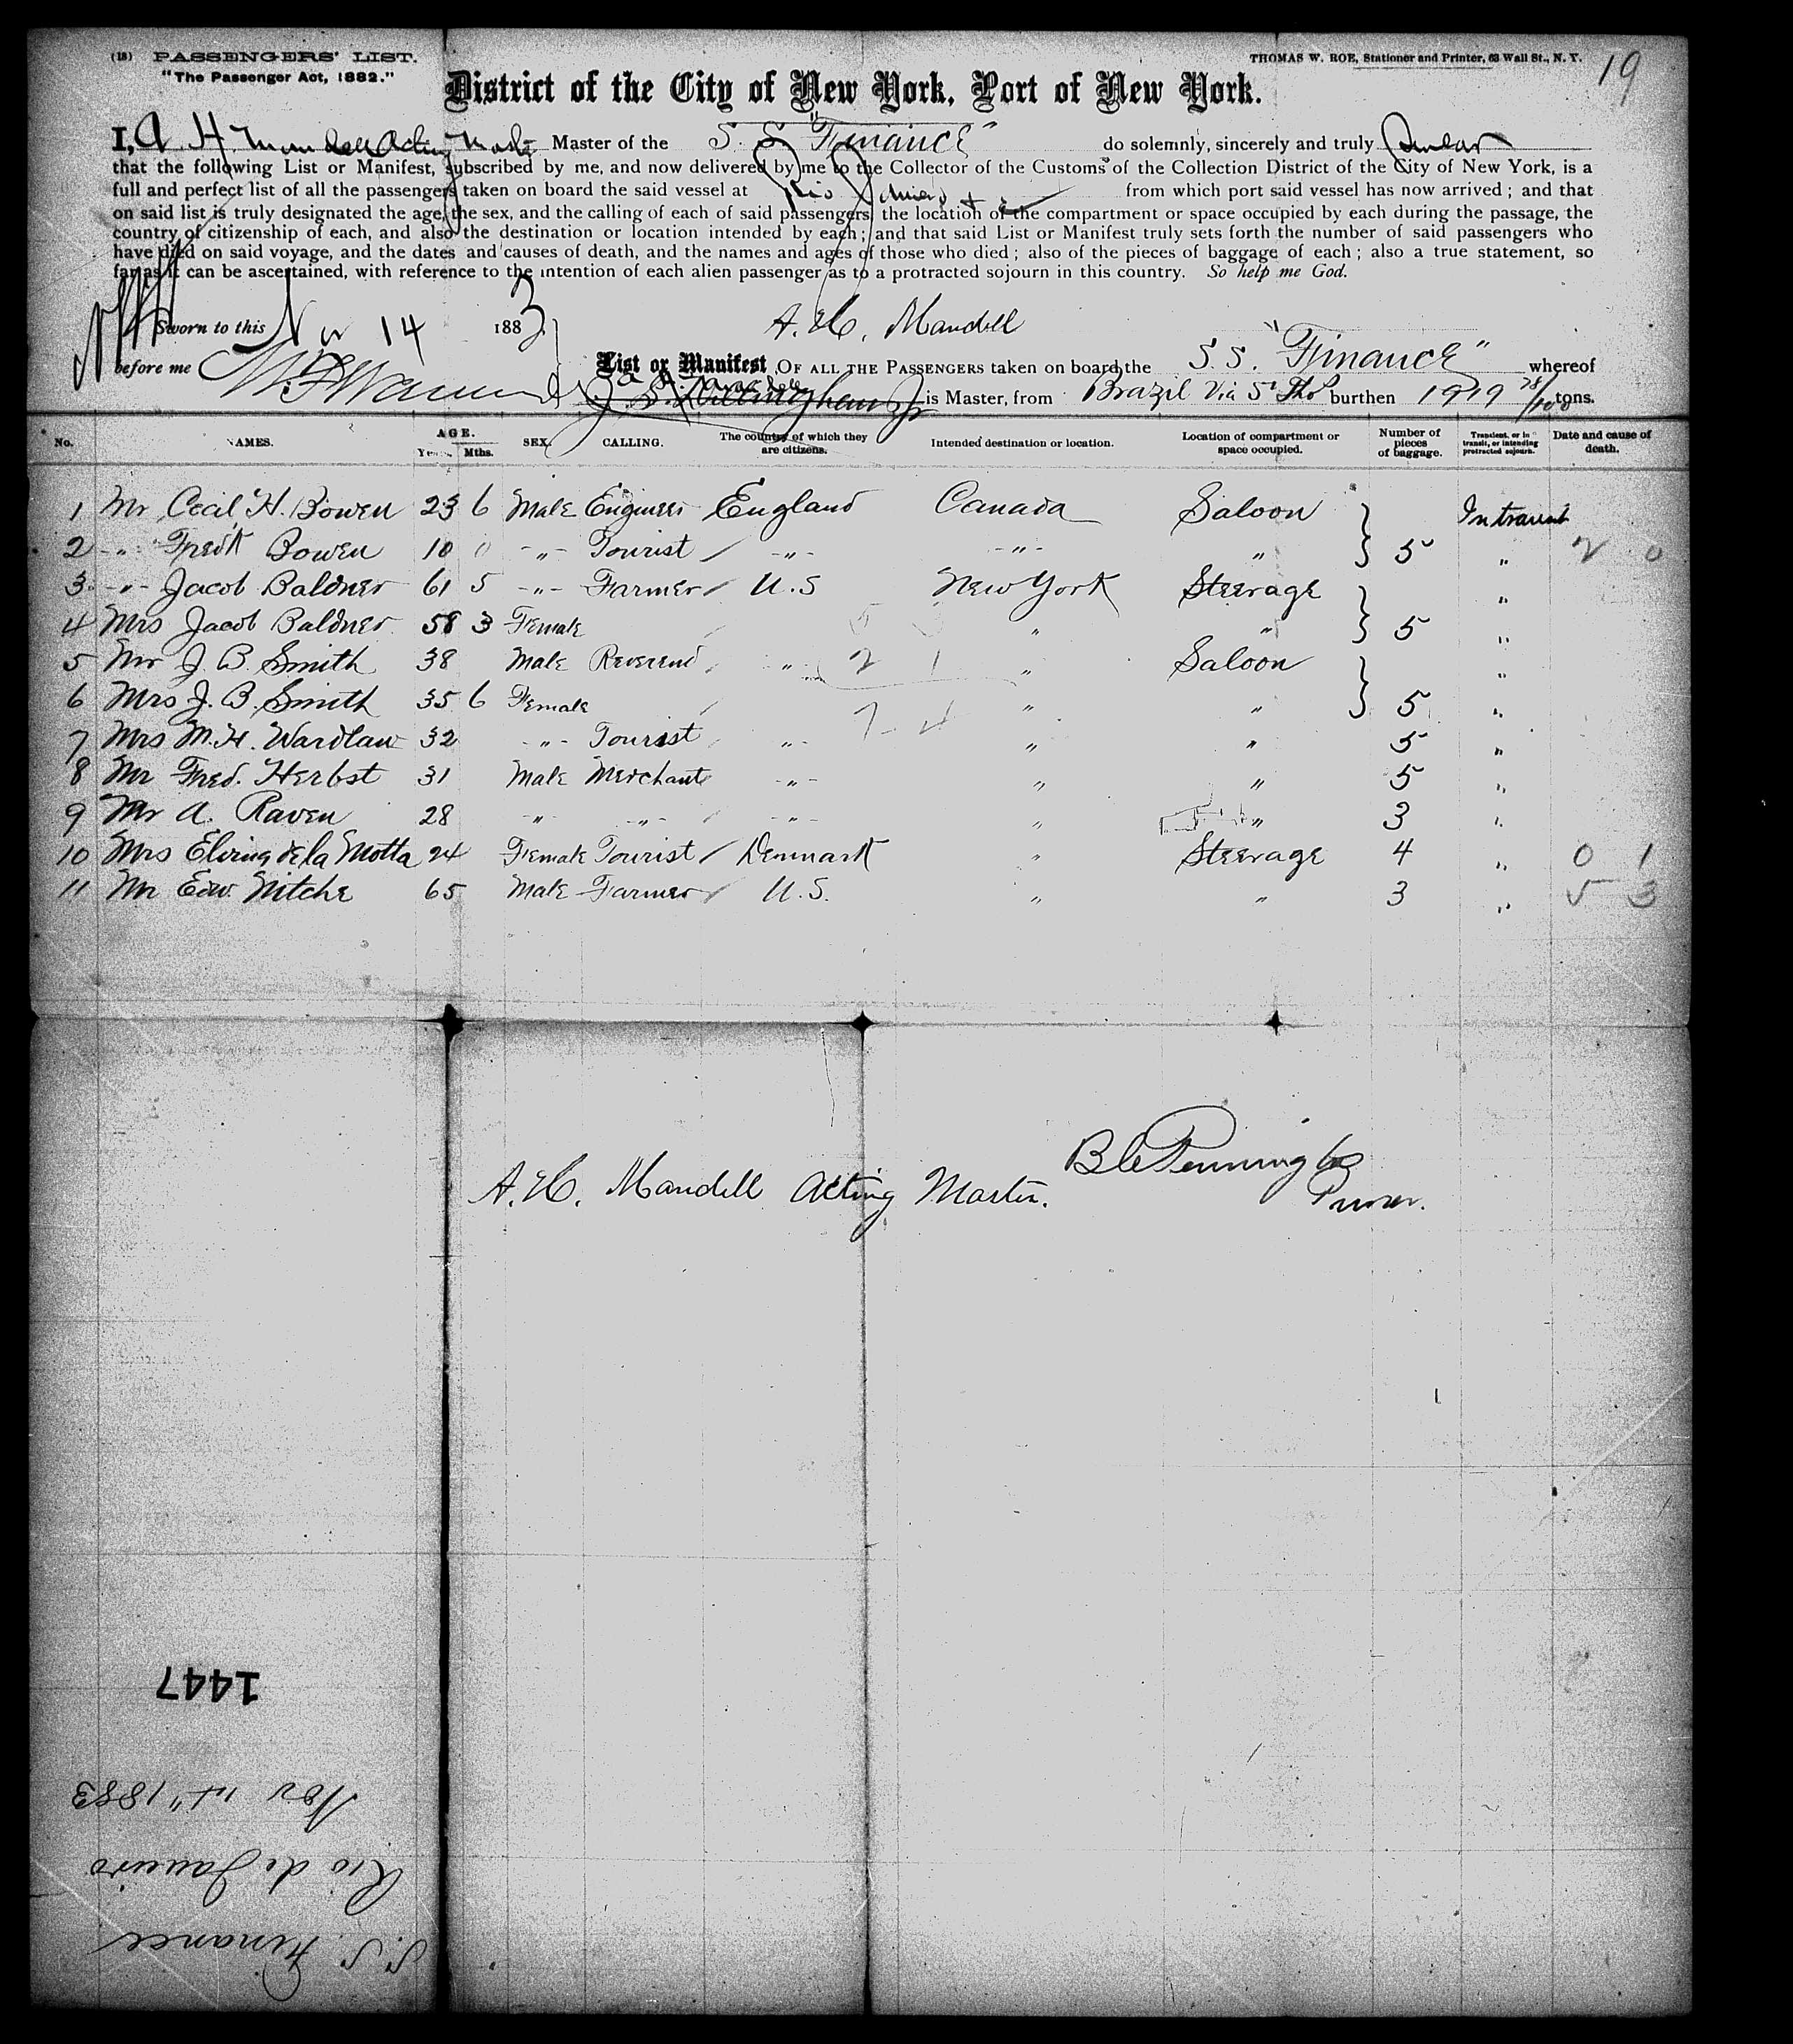 (18) PASSENGERS' LIST.
"The Passenger Act, 1882."
THOMAS W. ROE, Stationer and Printer, 63 Wall St., N. Y.
19
District of the City of New York, Port of New York.
I, A. H. Mandell Acting Master Master of the S. S. "Finance" do solemnly, sincerely and truly swear
that the following List or Manifest, subscribed by me, and now delivered by me to the Collector of the Customs of the Collection District of the City of New York, is a
full and perfect list of all the passengers taken on board the said vessel at Rio Janeiro from which port said vessel has now arrived; and that
on said list is truly designated the age, the sex, and the calling of each of said passengers, the location of the compartment or space occupied by each during the passage, the
country of citizenship of each, and also the destination or location intended by each; and that said List or Manifest truly sets forth the number of said passengers who
have died on said voyage, and the dates and causes of death, and the names and ages of those who died; also of the pieces of baggage of each; also a true statement, so
far as it can be ascertained, with reference to the intention of each alien passenger as to a protracted sojourn in this country. So help me God.
Sworn to this Nov 14 1883
A. H. Mandell
before me
List or Manifest OF ALL THE PASSENGERS taken on board the S. S. "Finance" whereof
A. H. Mandell is Master, from Brazil Via St Thos burthen 1919 78/100 tons.
No. NAMES. AGE. Years. Mths. SEX. CALLING. The country of which they are citizens. Intended destination or location. Location of compartment or space occupied. Number of pieces of baggage. Transient, or in transit, or intending protracted sojourn. Date and cause of death.
1 Mr Cecil H. Bowen 23 6 Male Engineer England Canada Saloon } In transit
2 -"- Fredk Bowen 10 0 -"- Tourist / -"- -"- " } 5 " 2 0
3 -"- Jacob Baldner 61 5 -"- Farmer / U.S New York Steerage } "
4 Mrs Jacob Baldner 58 3 Female " " } 5 "
5 Mr J. B. Smith 38 Male Reverend " 2 1 " Saloon } "
6 Mrs J. B. Smith 35 6 Female " " } 5 "
7 Mrs M. H. Wardlaw 32 -"- Tourist -"- " " 5 "
8 Mr Fred. Herbst 31 Male Merchant -"- " " 5 "
9 Mr A. Raven 28 -"- -"- -"- " " 3 "
10 Mrs Elvira de la Motta 24 Female Tourist / Denmark " Steerage 4 " 0 1
11 Mr Edw. Nitche 65 Male Farmer / U.S. " " 3 " 5 3
A. H. Mandell Acting Master.
Pennington
Purser.
1447
S. S. Finance
Rio de Janeiro
Nov 14" 1883